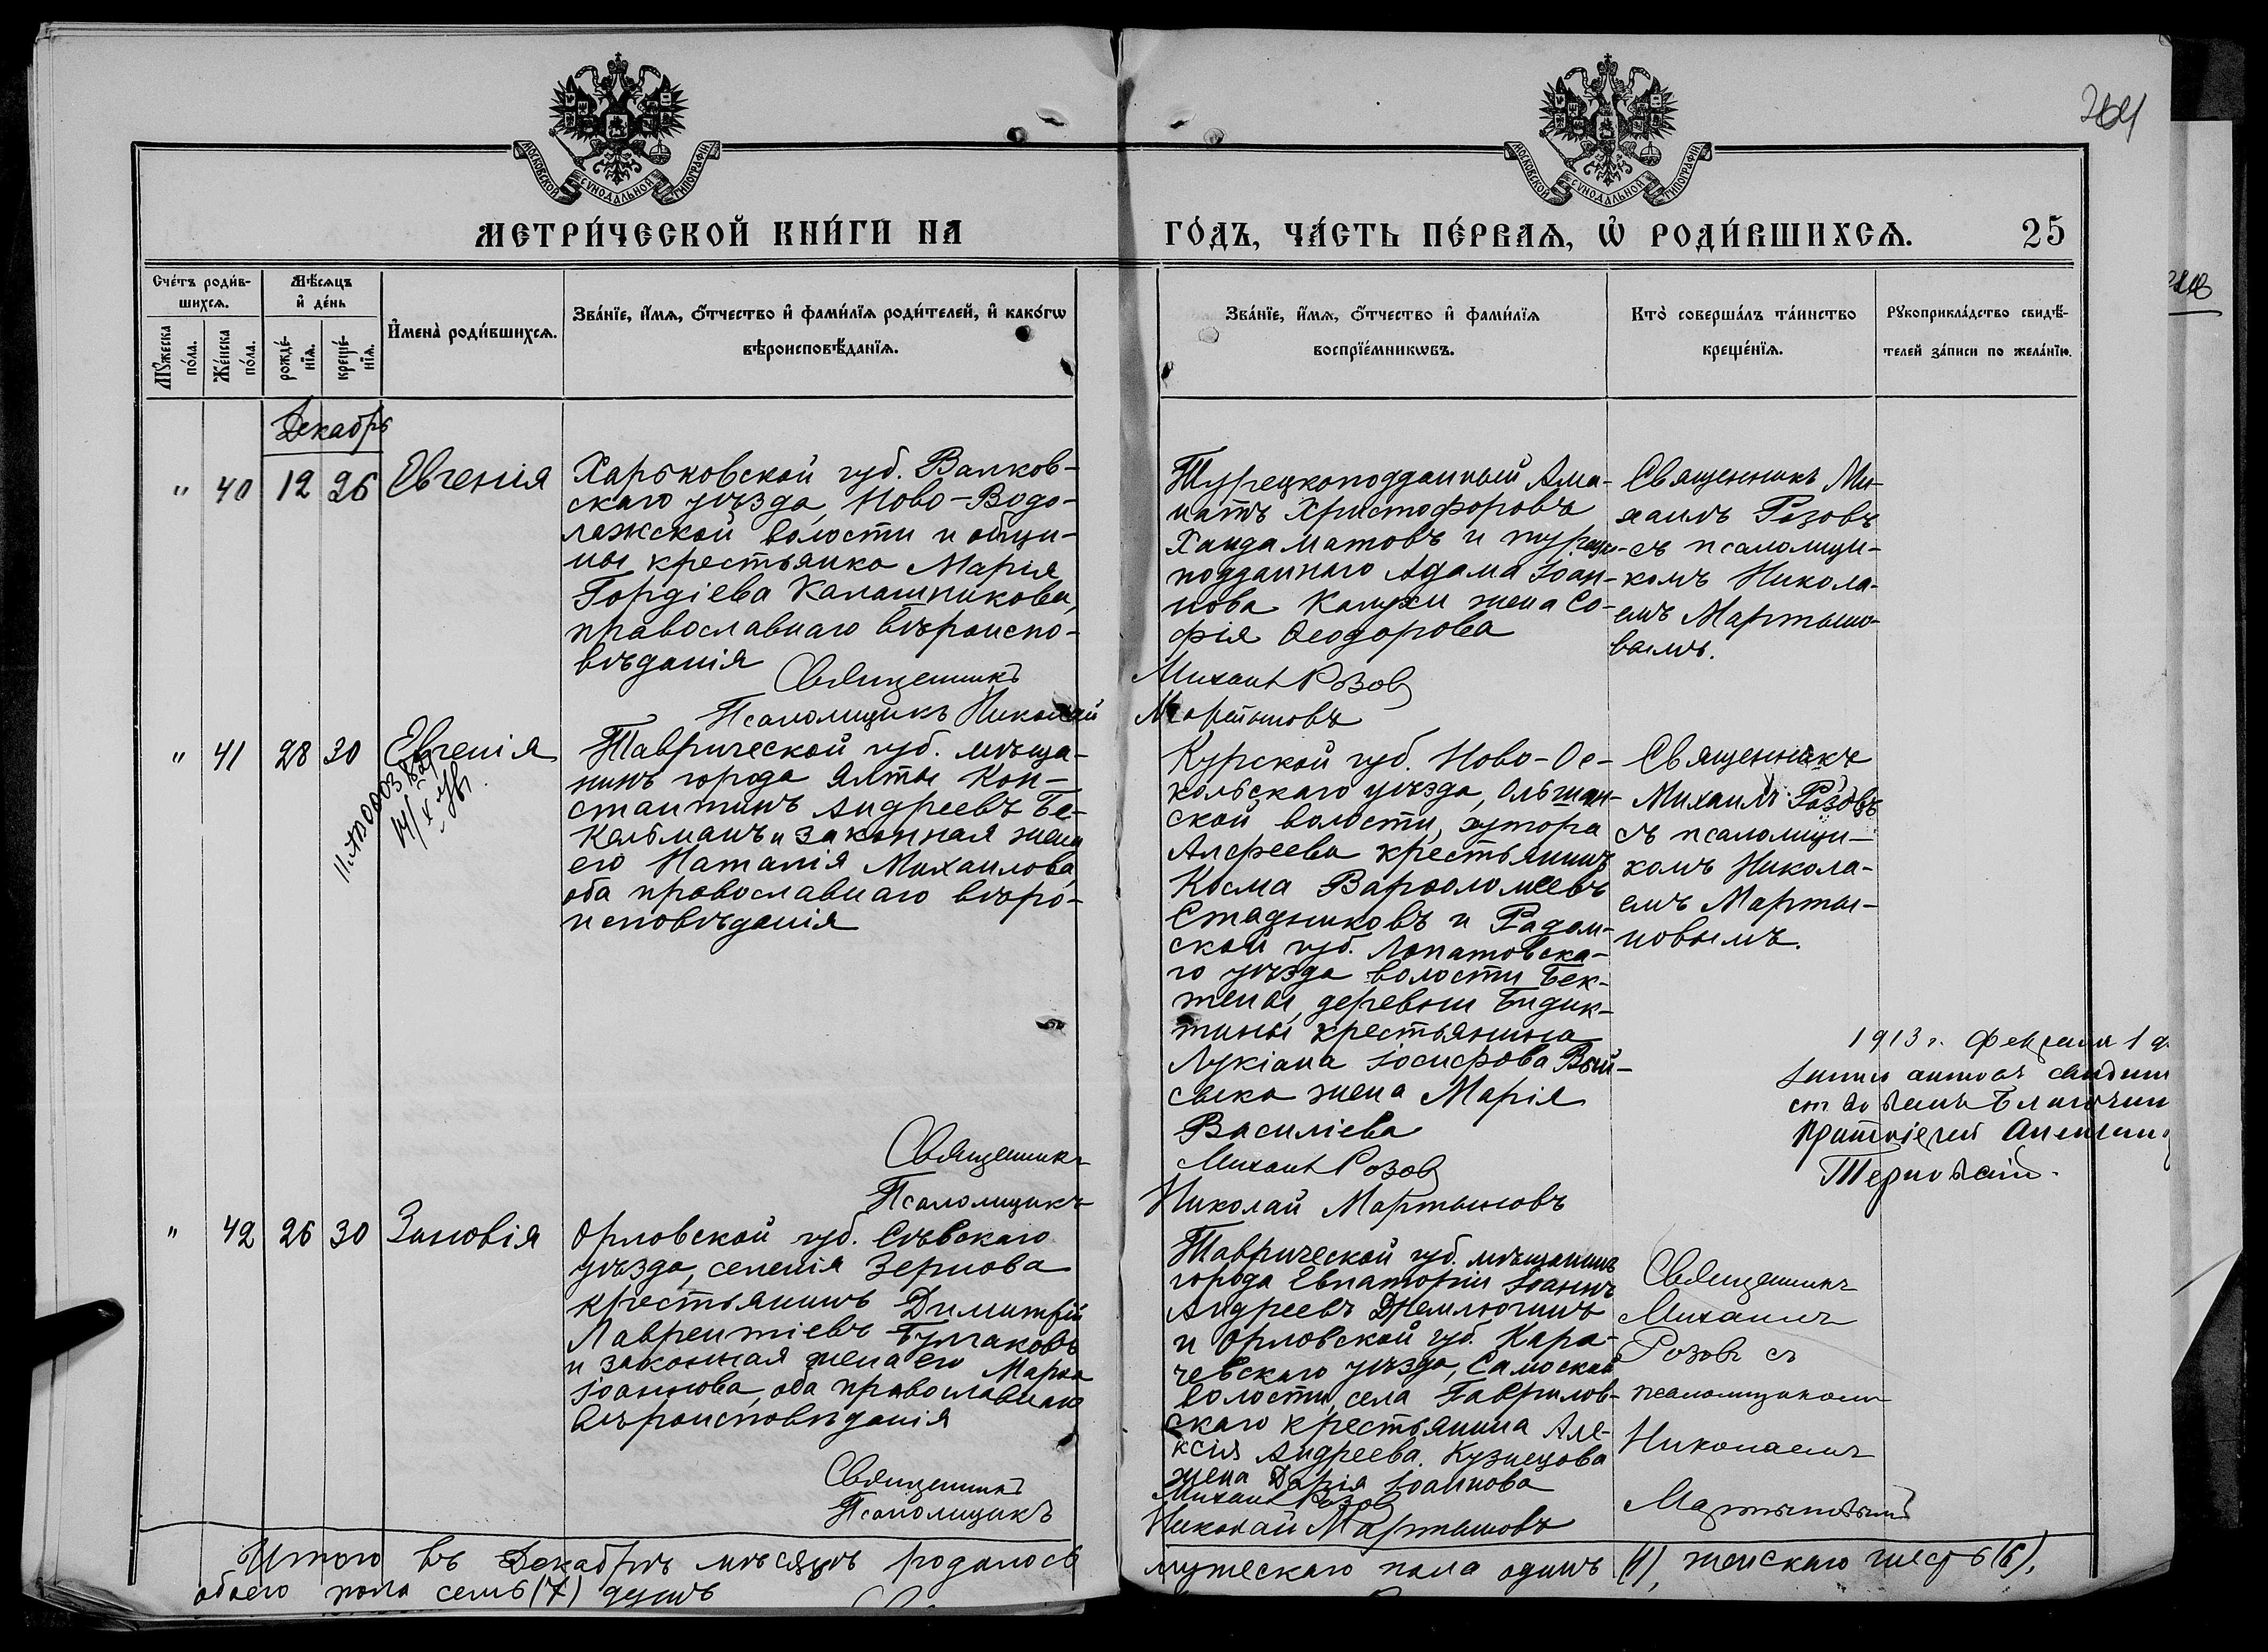 264
МОСКОВСКОЙ СѴНОДАЛЬНОЙ ТИПОГРАФІИ
МОСКОВСКОЙ СѴНОДАЛЬНОЙ ТИПОГРАФІИ
МЕТРИ́ЧЕСКОЙ КНИ́ГИ НА
ГО́ДЪ, ЧА́СТЬ ПЕ́РВАѦ, Ѡ҆ РОДИ́ВШИХСѦ.
25
Сче́тъ роди́в-
шихсѧ.
Мꙋ́жеска
по́ла.
Же́нска
по́ла.
Мѣ́сѧцъ
и҆ де́нь
рожде́-
нїѧ.
креще́-
нїѧ.
И҆мена̀ роди́вшихсѧ.
Зва́нїе, и҆́мѧ, ѻ҆́тчество и҆ фами́лїѧ роди́телей, и҆ како́гѡ
вѣроисповѣ́данїѧ.
Зва́нїе, и҆́мѧ, ѻ҆́тчество и҆ фами́лїѧ
воспрїе́мникѡвъ.
Кто̀ соверша́лъ та́инство
креще́нїѧ.
Рꙋкоприкла́дство свидѣ́-
телей за́писи по жела́нїю.
Декабрь
" 40 12 26 Евгенія
Харьковской губ. Валков-
скаго уѣзда, Ново-Водо-
лажской волости и общи-
ны крестьянка Марія
Гордіева Калашникова,
православнаго вѣроиспо-
вѣданія
Священникъ
Псаломщикъ Николай
Турецкоподданный Ама-
натъ Христофоровъ
Хандаматовъ и турецко-
подданнаго Адама Іоан-
нова Калухи жена Со-
фія Ѳеодорова
Михаил Розов
Мартыновъ
Священникъ Ми-
хаилъ Розовъ
съ псаломщи-
комъ Никола-
емъ Мартыно-
вымъ.
" 41 28 30 Евгенія
Таврической губ. мѣща-
нинъ города Ялты Кон-
стантинъ Андреевъ Бе-
кельманъ и законная жена
его Наталія Михаилова,
оба православнаго вѣро-
исповѣданія
Священникъ
Псаломщикъ
Курской губ. Ново-Ос-
кольскаго уѣзда, Ольшан-
ской волости, хутора
Алфеева крестьянинъ
Косма Варѳоломеевъ
Стадниковъ и Радом-
ской губ. Лопатовска-
го уѣзда волости Бек-
жены, деревни Бидик-
тины крестьянина
Лукіана Іосифова
жена Марія
Василіева
Михаил Розов
Николай Мартыновъ
Священникъ
Михаилъ Розовъ
съ псаломщи-
комъ Никола-
емъ Марты-
новымъ.
1913 г. Февраля 1 д.
Терновскій.
" 42 26 30 Зиновія
Орловской губ. Сѣвскаго
уѣзда, селенія Зернова
крестьянинъ Димитрій
Лаврентіевъ Булгаковъ
и законная жена его Марѳа
Іоаннова, оба православнаго
вѣроисповѣданія
Священникъ
Псаломщикъ
Таврической губ. мѣщанинъ
города Евпаторіи Іоаннъ
Андреевъ Дремлючинъ
и Орловской губ. Кара-
чевскаго уѣзда, Самоской
волости, села Гаврилов-
скаго крестьянина Але-
ксія Андреева Кузнецова
жена Дарія Іоаннова
Михаил Розов
Николай Мартыновъ
Священникъ
Михаилъ
Розовъ съ
псаломщикомъ
Николаемъ
Мартыновымъ
Итого въ Декабрѣ мѣсяцѣ родилось
мужескаго пола одинъ (1), женскаго шесть (6),
обоего пола семь (7) душъ